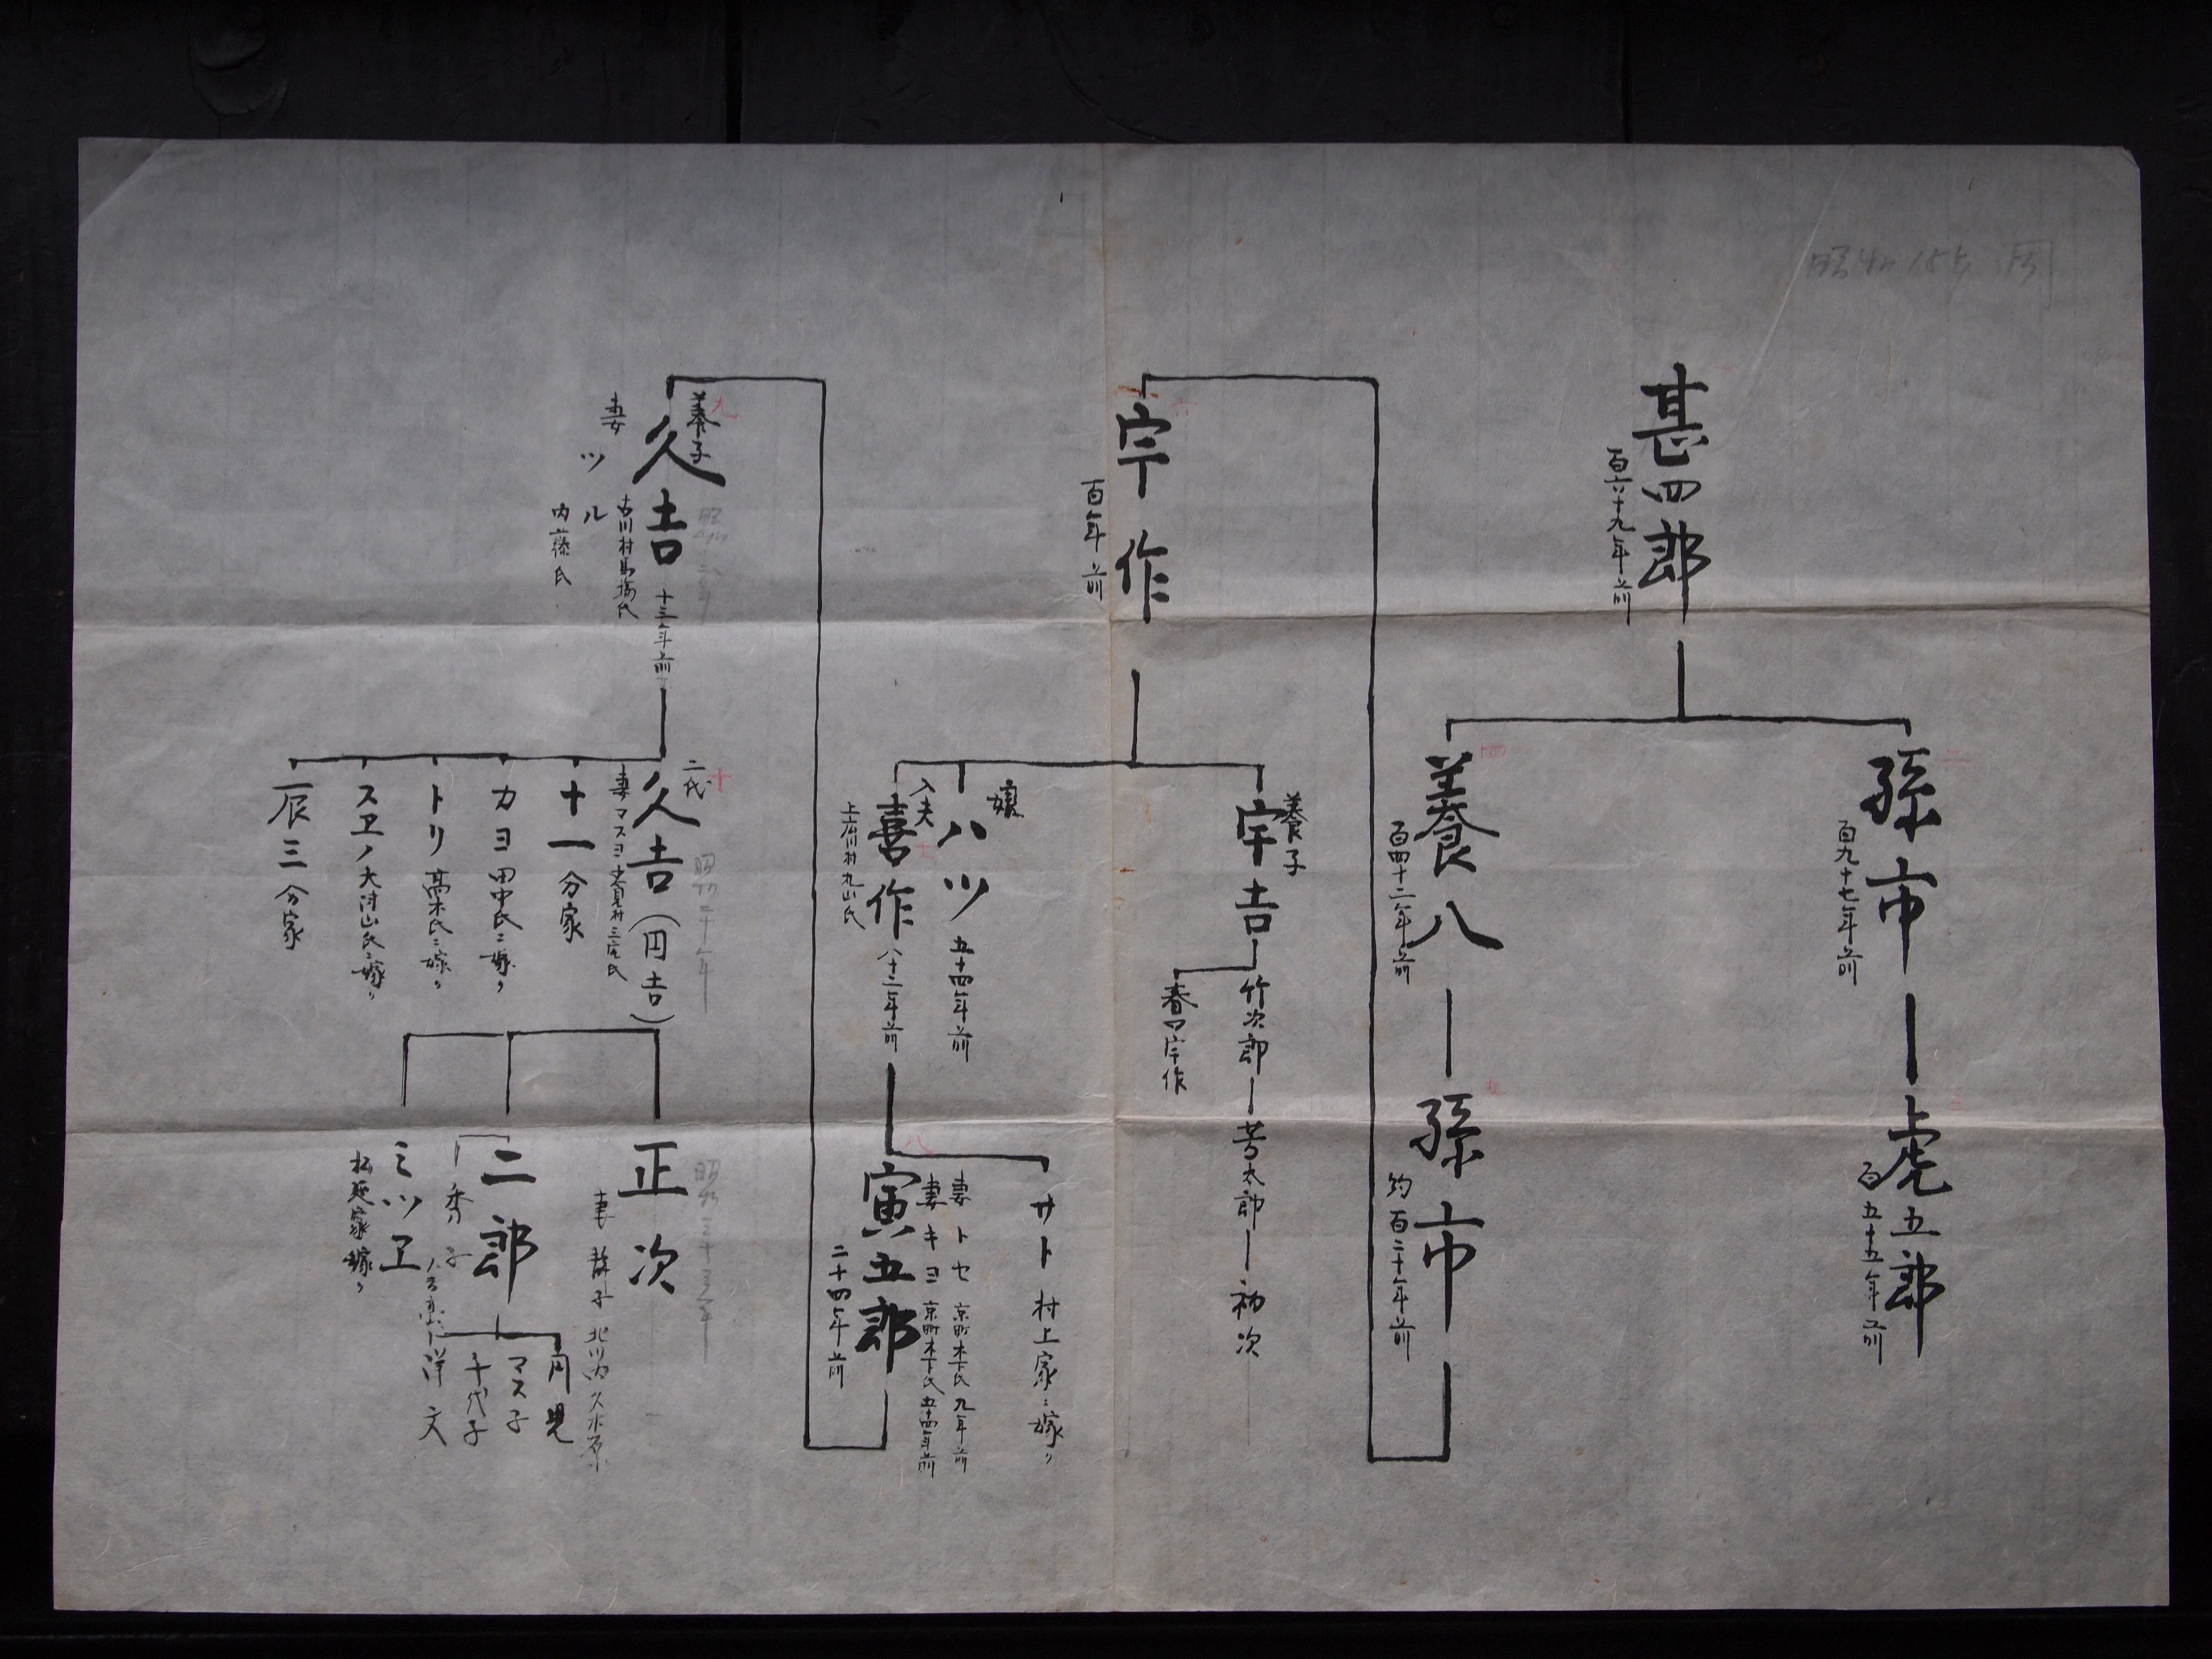 甚四郎
百六十九年前
二
孫市
百九十七年前
虎五郎
百五十五年前
四
養八
百四十二年前
五
孫市
約百二十年前
六
宇作
百年前
養子
宇吉
竹次郎
芳太郎
初次
春口宇作
娘
ハツ
五十四年前
入夫
喜作
八十二年前
上広川村丸山氏
サト
村上家ニ嫁ク
八
寅五郎
二十四年前
妻トセ
京町木下氏
九年前
妻キヨ
京町木下氏
五十四年前
九
養子
久吉
十三年前
妻ツル
内藤氏
十
二代
久吉(円吉)
昭和二十年
妻マスヨ
十一
分家
カヨ
田中氏ニ嫁ク
トリ
高木氏ニ嫁ク
スヱノ
大津山氏ニ嫁ク
辰三
分家
正次
昭和三十三年
妻静子
二郎
秀子
角児
マス子
千代子
洋文
ミツヱ
松延家嫁ク